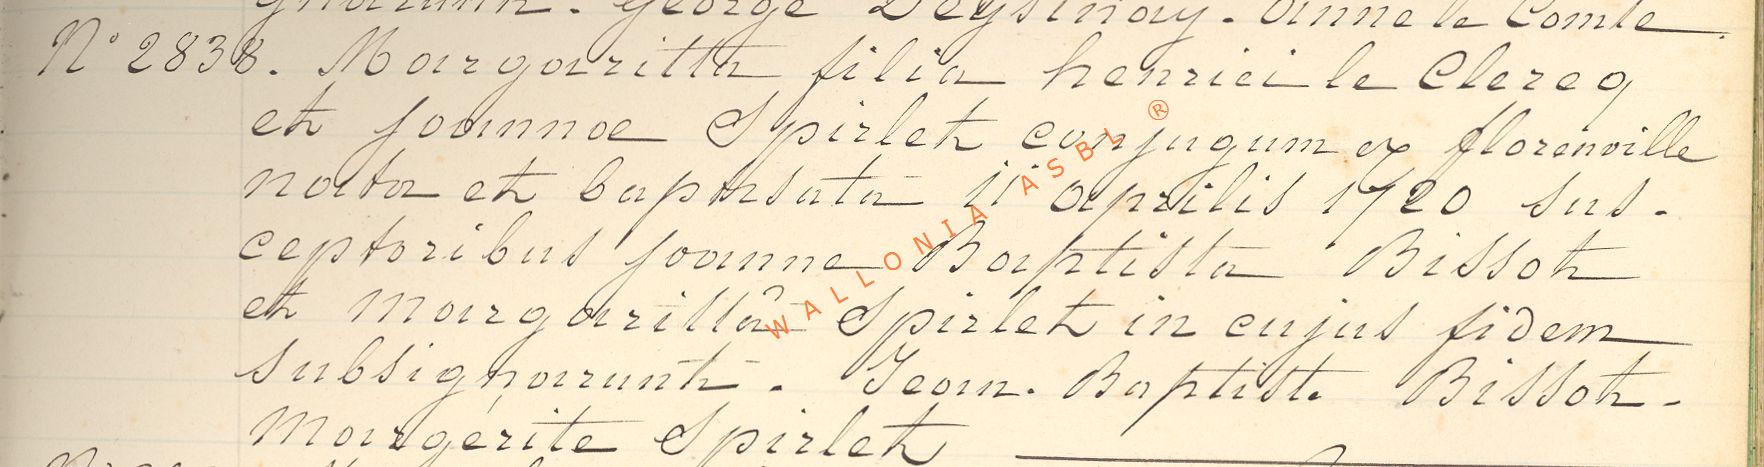 gnarunt. George Deysinay. Anne le Comte
N° 2838. Margaritta filia henrici le Clercq
et joannoe Spirlet conjugum ex florenville
nata et baptisata 11 aprilis 1720 sus-
ceptoribus joanne Baptista Bissot
et Margarittâ Spirlet in cujus fidem
subsignarunt. Jean-Baptist. Bissot-
Margerite Spirlet
WALLONIA ASBL ®